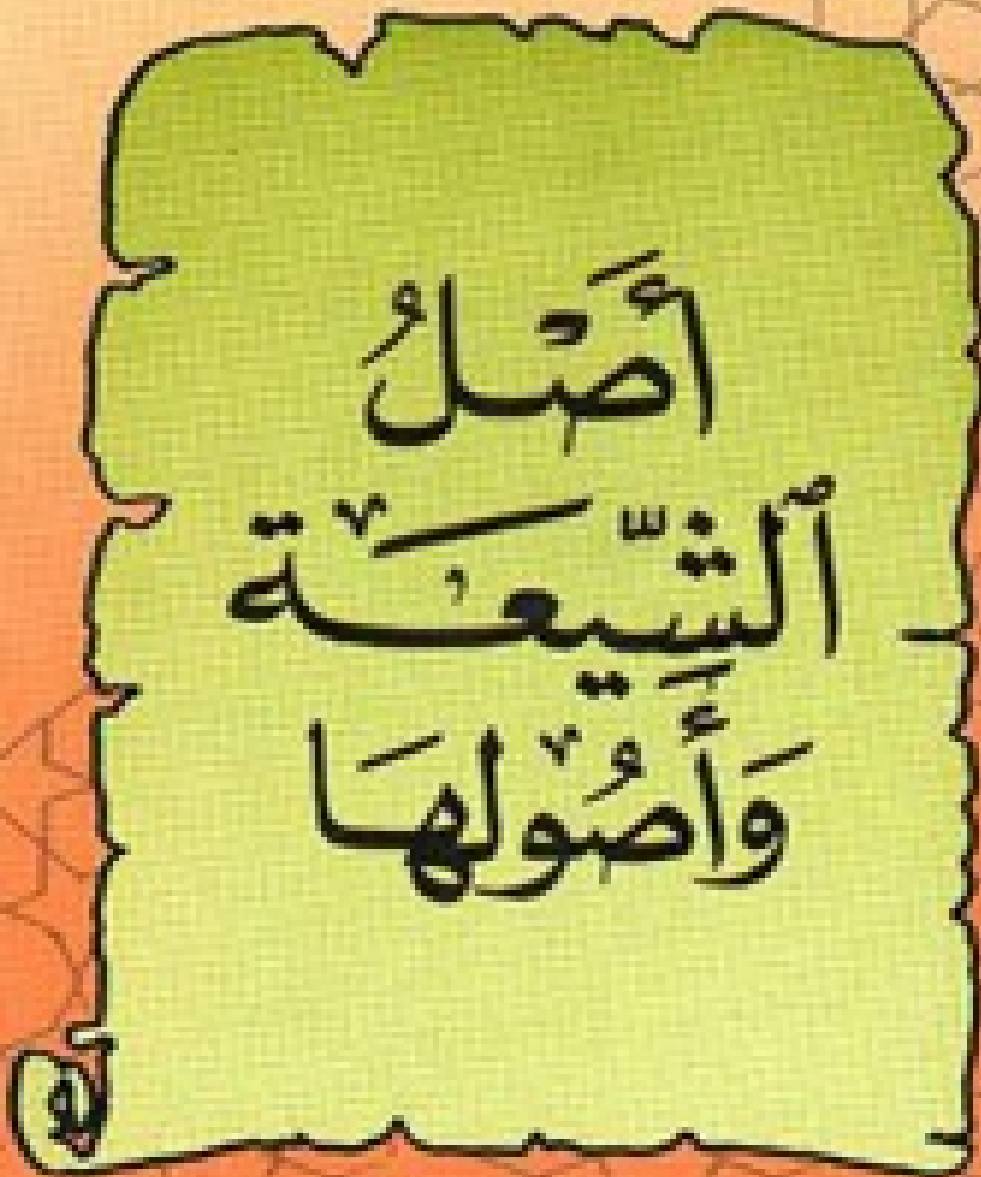 أَصْلُ
ٱلشِّيعَة
وَأُصُولهَا